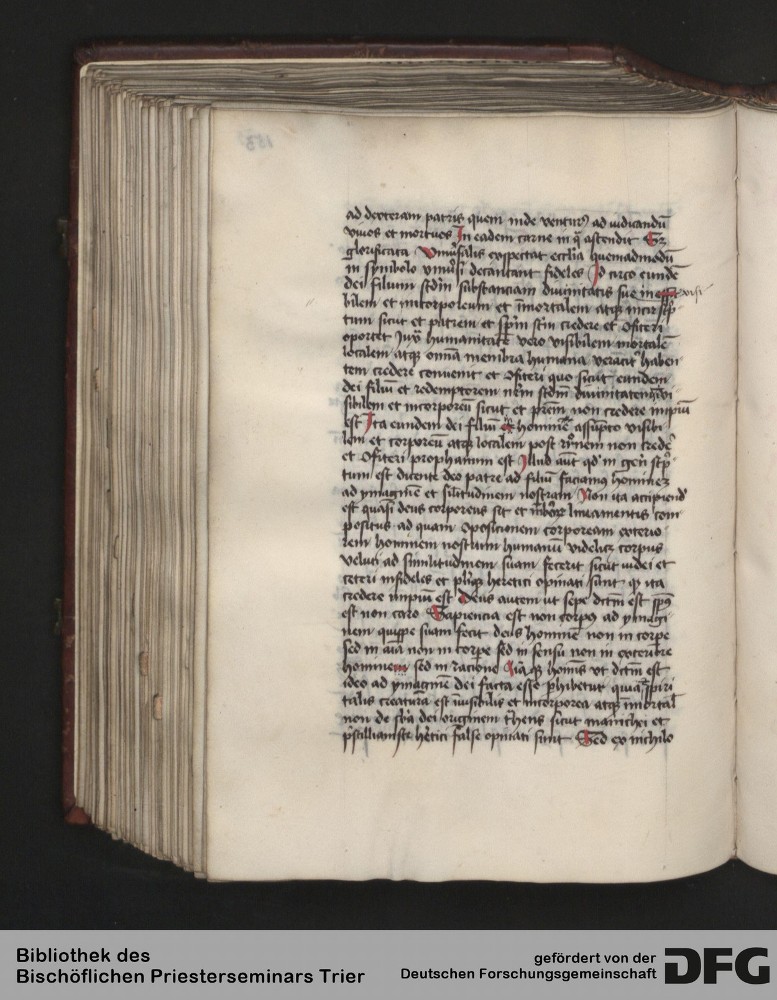 ad dexteram patris quem inde venturꝰ ad iudicandū
viuos et mortuos In eadem carne in q̄ ascendit Sȝ
glorificata Vniu̾salis expectat eccl̄ia quemadmodū
in symbolo vniu̾si decantant fideles Id circo eundē
dei filium scdm̄ substanciam diuinitatis sue in visi
bilem et incorporeum et im̄ortalem atqꝫ incirscp̄
tum sicut et patrem et sp̄m sc̄m credere et ꝯfiteri
oportet Iux̄ humanitatē vero visibilem mortalē
localem atqꝫ omnia membra humana veracit̾ haben
tem credere conuenit et ꝯfiteri quo sicut eundem
dei filiū et redemptorem nr̄m scdm̄ diuinitatem īvi
sibilem et incorporeū sicut et pr̄em non credere impiū
est Ita eundem dei filiū hominē assūpto visibi
lem et corporeū atqꝫ localem post non credē
et ꝯfiteri prophanum est Illud aūt qd̾ in gen̄ scp̄
tum est dicente deo patre ad filiū faciamꝰ hominem
ad ymaginē et sil̄itudinem nostram Non ita accipiend̾
est quasi deus corporeus sit et liniamentis com
positus ad quam ꝯposicionem corpoream exterio
rem hominem nostrum humanū videlicꝫ corpus
veluti ad similitudinem suam fecerit sicut iudei et
ceteri infideles et pl̾iqꝫ heretici opinati sunt qꝫ ita
credere impiū est Deus autem ut sepe dictm̄ est sp̄c
est non caro Sapiencia est non corpꝰ ad ymagi
nem quippe suam fecit deus hominē non in corpe
sed in aīa non in corpe sed in sensu non in exteriore
homine sed in racione Aīaqꝫ homīs vt dictm̄ est
ideo ad ymaginē dei facta esse ꝓhibetur quia spiri
talis creatura est īuisibilis et incorporea atqꝫ īmortal̄
non de sb̄a dei originem t̾hens sicut manichei et
p̾scillianiste h̾etici false opinati sunt Sed ex nichilo
153
Bibliothek des
Bischöflichen Priesterseminars Trier
gefördert von der
Deutschen Forschungsgemeinschaft
DFG